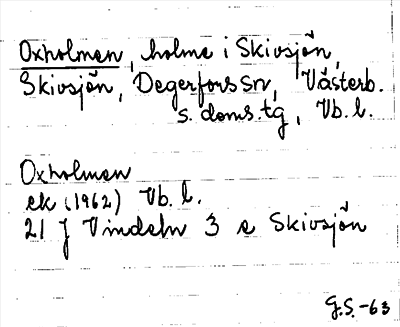 Oxholmen, holme i Skivsjön,
Skivsjön, Degerfors sn, Västerb.
s. doms.tg, Vb. l.
Oxholmen
ek (1962) Vb. l.
21 J Vindeln 3 e Skivsjön
G.S.-63